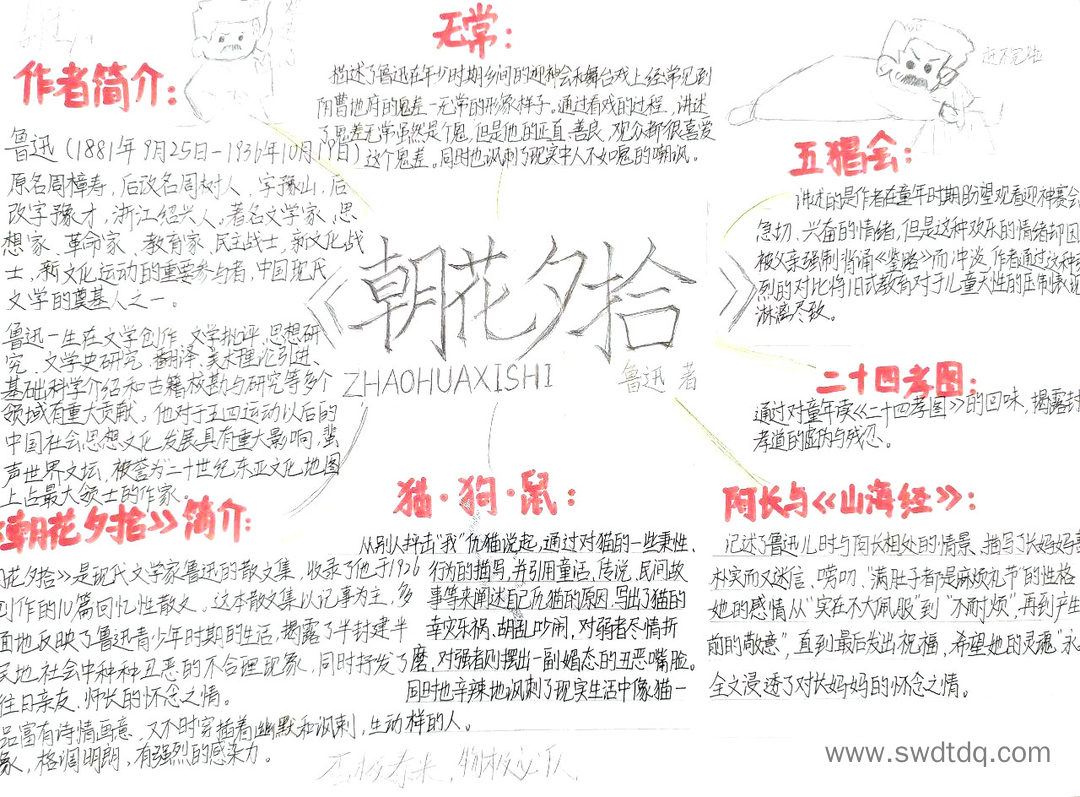 作者简介:
鲁迅(1881年9月25日-1936年10月19日)
原名周樟寿,后改名周树人,字豫山,后
改字豫才,浙江绍兴人。著名文学家、思
想家、革命家、教育家、民主战士,新文化战
士,新文化运动的重要参与者,中国现代
文学的奠基人之一。
鲁迅一生在文学创作、文学批评、思想研
究、文学史研究、翻译、美术理论引进、
基础科学介绍和古籍校勘与研究等多个
领域有重大贡献。他对于五四运动以后的
中国社会思想文化发展具有重大影响,蜚
声世界文坛,被誉为二十世纪东亚文化地图
上占最大领土的作家。
无常:
描述了鲁迅在年少时期乡间的迎神会和舞台戏上经常见到
阴曹地府的鬼差-无常的形象样子。通过看戏的过程,讲述
了鬼差无常虽然是个鬼,但是他的正直、善良,观众都很喜爱
这个鬼差。同时也讽刺了现实中人不如鬼的嘲讽。
五猖会:
讲述的是作者在童年时期盼望观看迎神赛会
急切、兴奋的情绪,但是这种欢乐的情绪却因
被父亲强制背诵《鉴略》而冲淡,作者通过这种
烈的对比将旧式教育对于儿童天性的压制表
淋漓尽致。
《朝花夕拾》
ZHAOHUAXISHI
鲁迅 著
二十四孝图:
通过对童年读《二十四孝图》的回味,揭露封
孝道的虚伪与残忍。
朝花夕拾》简介:
花夕拾》是现代文学家鲁迅的散文集,收录了他于1926
创作的10篇回忆性散文,这本散文集以记事为主,多
面地反映了鲁迅青少年时期的生活,揭露了半封建半
民地社会中种种丑恶的不合理现象,同时抒发了
往日亲友、师长的怀念之情。
品富有诗情画意,又不时穿插着幽默和讽刺,生动
象,格调明朗,有强烈的感染力。
猫·狗·鼠:
从别人抨击“我”仇猫说起,通过对猫的一些秉性、
行为的描写,并引用童话、传说、民间故
事等来阐述自己仇猫的原因,写出了猫的
幸灾乐祸、胡乱吵闹,对弱者尽情折
磨,对强者则摆出一副媚态的丑恶嘴脸。
同时也辛辣地讽刺了现实生活中像猫一
样的人。
阿长与《山海经》:
记述了鲁迅儿时与阿长相处的情景、描写了长妈妈善
朴实而又迷信、唠叨、“满肚子都是麻烦礼节”的性格
她的感情从“实在不大佩服”到“不耐烦”,再到产生
前的敬意”,直到最后发出祝福,希望她的灵魂“永
全文浸透了对长妈妈的怀念之情。
www.swdtdq.com